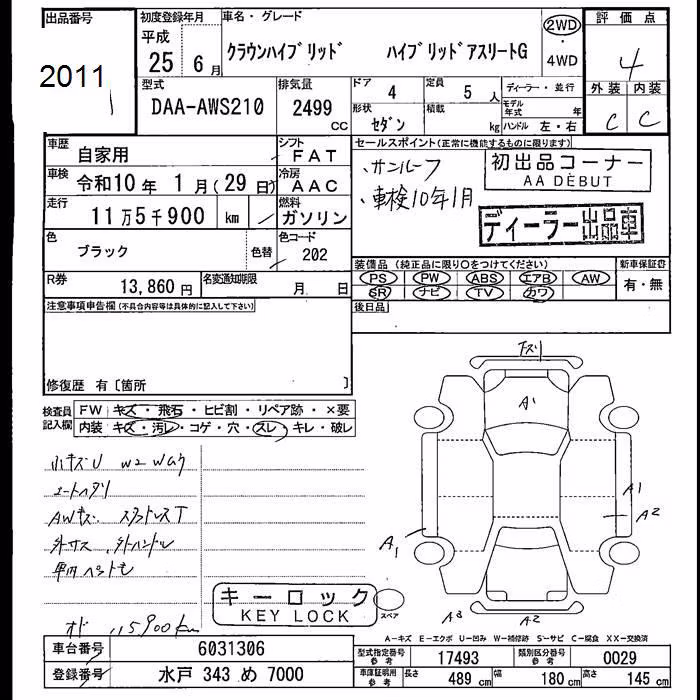 出品番号 初度登録年月 車名・グレード 2WD 評価点
2011 平成 25 6月 クラウンハイブリッド ハイブリッドアスリートG ・ 4WD 4
型式 DAA-AWS210 排気量 2499 CC ドア 4 定員 5人 ディーラー・並行 外装 内装
形状 セダン 積載 kg モデル年式 年 ハンドル 左・右 C C
車歴 自家用 シフト FAT セールスポイント(正常に機能するものに限ります)
車検 令和10年 1月(29日) 冷房 AAC ・サンルーフ 初出品コーナー
AA DEBUT
走行 11万5千900 km 燃料 ガソリン ・車検10年1月 ディーラー出品車
色 ブラック 色替 色コード 202
装備品(純正品に限り○をつけてください) 新車保証書
R券 13,860円 名変通知期限 月 日 PS PW ABS エアB AW 有・無
SR ナビ TV カワ
注意事項申告欄(不具合内容等は具体的に記入して下さい) 後日品
修復歴 有〔箇所 〕
検査員記入欄 FW キズ・飛石・ヒビ割・リペア跡・×要
内装 キズ・汚レ・コゲ・穴・スレ・キレ・破レ
小キズU
AWキズ
外ハンドル
A1
A1
A2
A1
A3 A2
キーロック
KEY LOCK
スペア
115900km
A-キズ E-エクボ U-凹み W-補修跡 S-サビ C-腐食 XX-交換済
車台番号 6031306 型式指定番号 参考 17493 類別区分番号 参考 0029
登録番号 水戸 343 め 7000 車庫証明用 参考 長さ 489 cm 幅 180 cm 高さ 145 cm